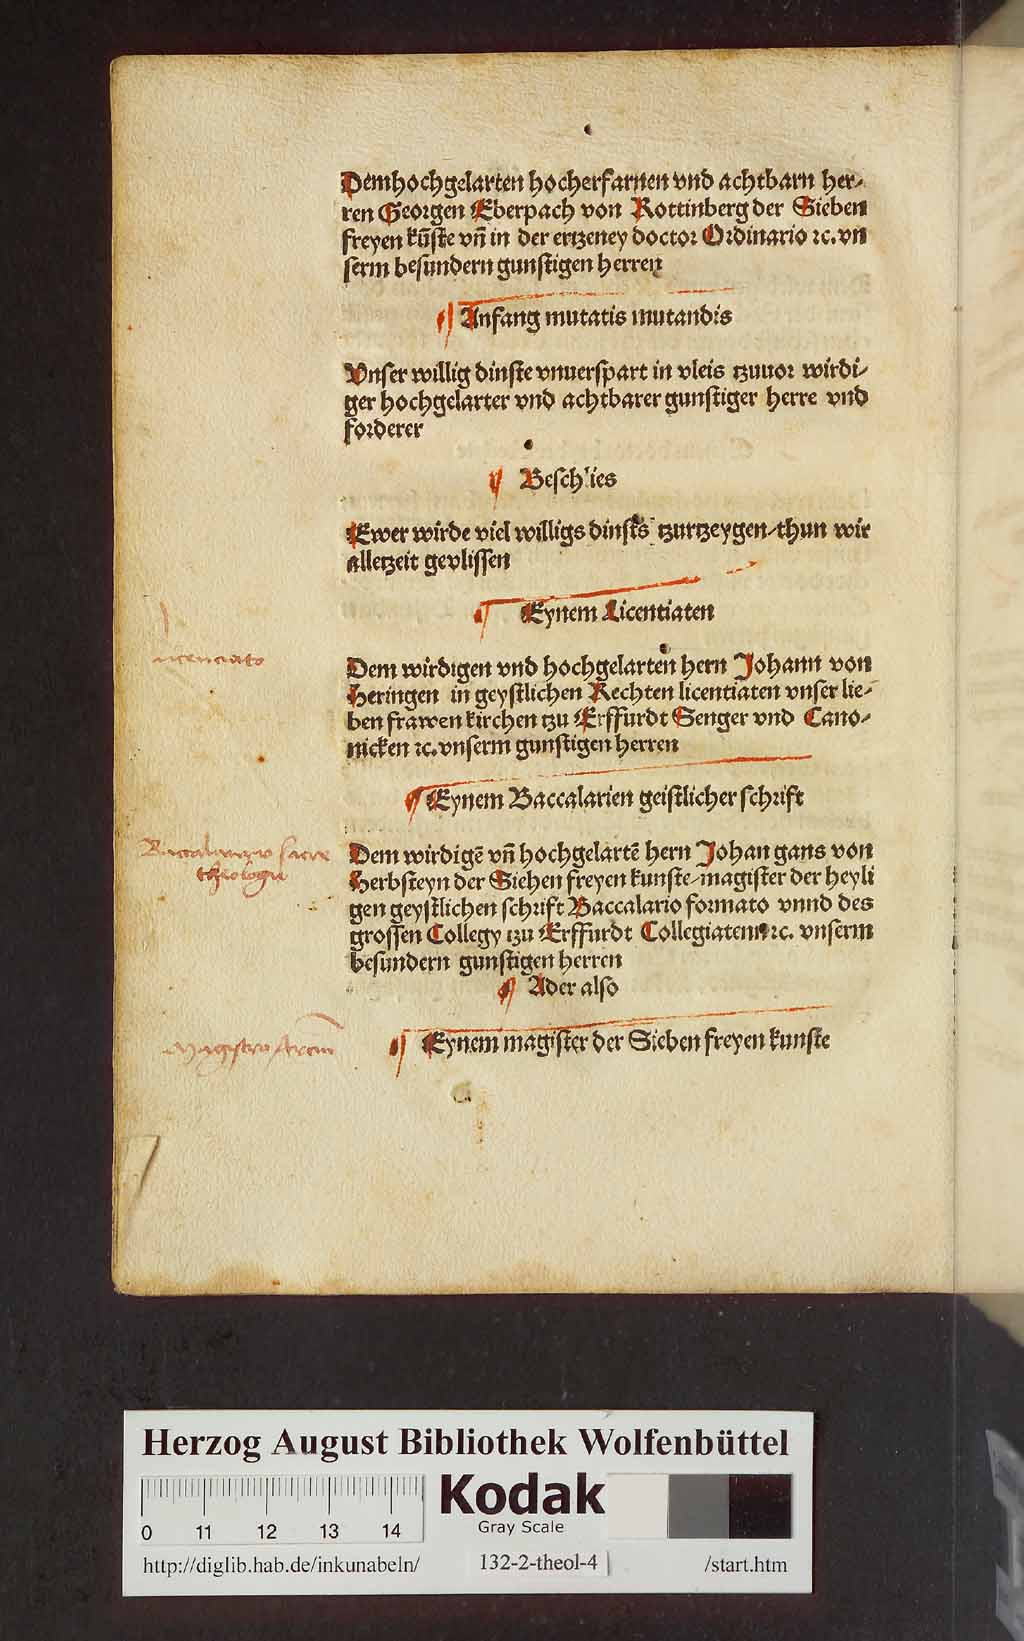 Demhochgelarten hocherfarnen vnd achtbarn her⸗
ren Georgen Eberpach von Rottinberg der Sieben
freyen ku̅ste vn̅ in der ertzeney doctor Ordinario ꝛc. vn
serm besundern gunstigen herren
¶ Anfang mutatis mutandis
Vnser willig dinste vnuerspart in vleis tzuuor wirdi⸗
ger hochgelarter vnd achtbarer gunstiger herre vnd
forderer
¶ Beschlies
Ewer wirde viel willigs dinsts tzurtzeygen⸗thun wir
alletzeit gevlissen
¶ Eynem Licentiaten
licenciato
Dem wirdigen vnd hochgelarten hern Johann von
Heringen in geystlichen Rechten licentiaten vnser lie⸗
ben frawen kirchen tzu Erffurdt Senger vnd Cano⸗
nicken ꝛc. vnserm gunstigen herren
¶ Eynem Baccalarien geistlicher schrift
Baccalaureo sacre
theologie
Dem wirdige̅ vn̅ hochgelarte̅ hern Johan gans von
Herbsteyn der Siehen freyen kunste⸗magister der heyli
gen geystlichen schrift Baccalario formato vnnd des
grossen Collegy tzu Erffurdt Collegiatenn ꝛc. vnserm
besundern gunstigen herren
¶ Ader also
Magistro Arcm̅
¶ Eynem magister der Sieben freyen kunste
Herzog August Bibliothek Wolfenbüttel
0 11 12 13 14
Kodak
Gray Scale
http://diglib.hab.de/inkunabeln/ 132-2-theol-4 /start.htm